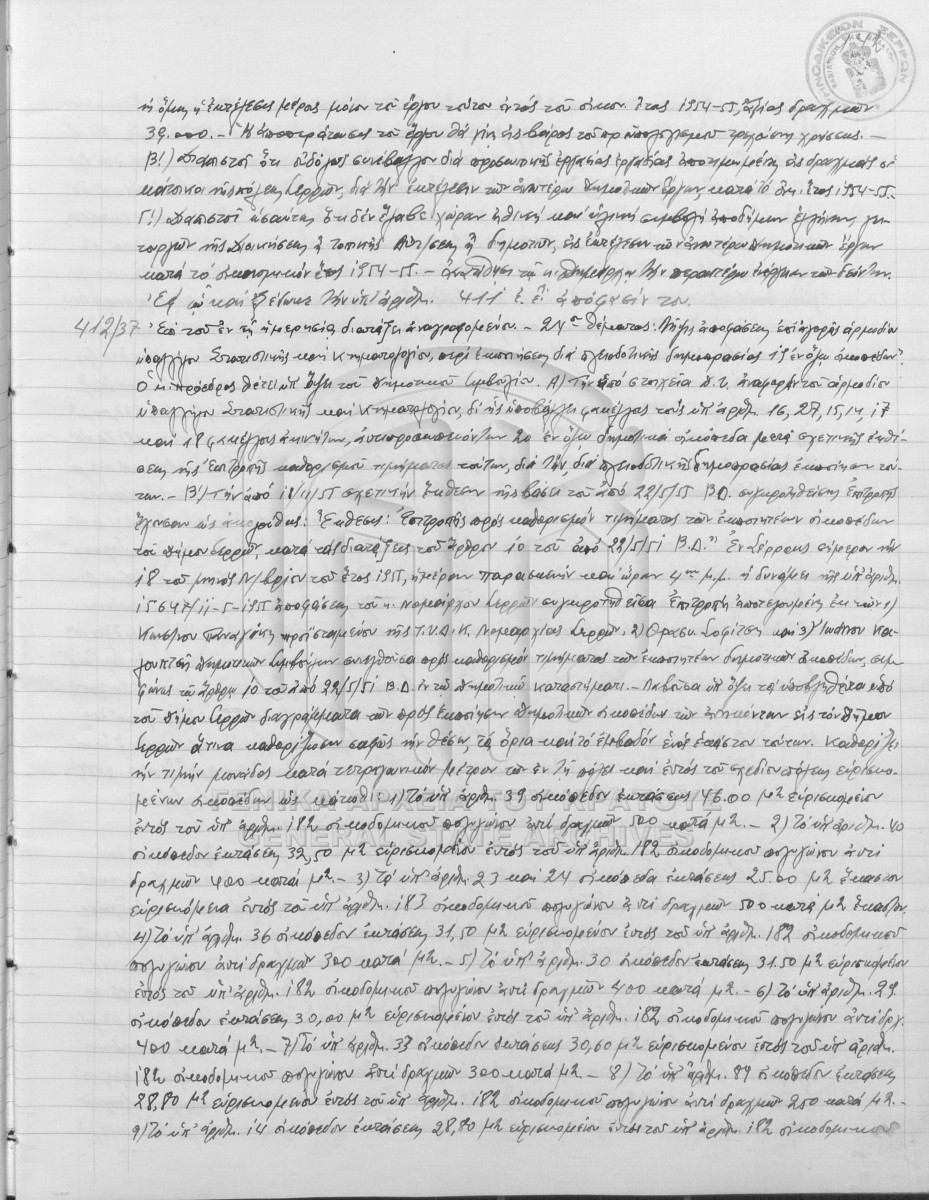 ΠΡΩΤΟΔΙΚΕΙΟΝ ΣΕΡΡΩΝ
ἢ ὅμως ἡ ἐκτέλεσις μέρος μόνον τοῦ ἔργου τούτου ἐντὸς τοῦ οἰκον. ἔτους 1954-55, ἀξίας δραχμῶν
39.000.- Ἡ ἀποπεράτωσις τοῦ ἔργου θὰ γίνῃ εἰς βάρος τοῦ προϋπολογισμοῦ τρεχούσης χρήσεως.-
Β!) Διαπιστοῖ ὅτι οὐδόλως συνέβαλλον διὰ προσωπικῆς ἐργασίας ἀποτιμωμένης εἰς δραχμὰς οἱ
κάτοικοι τῆς πόλεως Σερρῶν, διὰ τὴν ἐκτέλεσιν τῶν ἀνωτέρω δημοτικῶν ἔργων, κατὰ τὸ οἰκ. ἔτος 1954-55.
Γ!) Διαπιστοῖ ὡσαύτως ὅτι δὲν ἔλαβε χώραν ἠθικὴ καὶ ὑλικὴ συμβολὴ ἀποδήμων ἑλλήνων,
τῆς Διοικήσεως ἢ τοπικῆς Αὐτ/σεως ἢ δημοτῶν, εἰς ἐκτέλεσιν τῶν ἀνωτέρω δημοτικῶν ἔργων
κατὰ τὸ οἰκονομικὸν ἔτος 1954-55.- Ἀναθέτει τῷ κ. Δημάρχῳ τὴν περαιτέρω ἐνέργειαν τῶν δεόντων.
Ἐφ' ᾧ καὶ ἐξέδωκε τὴν ὑπ' ἀριθμ. 411 ἀπόφασίν του.
412/37 Ἐπὶ τοῦ ἐν τῇ ἡμερησίᾳ διατάξει ἀναγραφομένου.- 24ου θέματος: Λῆψις ἀποφάσεως ἐπὶ ἀναφορᾶς ἁρμοδίου
ὑπαλλήλου Στατιστικῆς καὶ Κτηματολογίου, περὶ ἐκποιήσεως διὰ πλειοδοτικῆς δημοπρασίας 19 ἐν ὅλῳ οἰκοπέδων.
Ὁ κ. Πρόεδρος θέτει ὑπ' ὄψει τοῦ Δημοτικοῦ Συμβουλίου. Α) Τὴν ἀπὸ στοιχεῖα ἀναφορὰν τοῦ ἁρμοδίου
ὑπαλλήλου Στατιστικῆς καὶ Κτηματολογίου, δι' ἧς ὑποβάλλει φακέλλους τοὺς ὑπ' ἀριθμ. 16, 27, 15, 14, 17
καὶ 18 φακέλλους ἀκινήτων, ἀντιπροσωπευόντων 20 ἐν ὅλῳ δημοτικὰ οἰκόπεδα μετὰ σχετικῆς ἐκθέ-
σεως τῆς Ἐπιτροπῆς καθορισμοῦ τιμήματος τούτων, διὰ τὴν διὰ πλειοδοτικῆς δημοπρασίας ἐκποίησιν τού-
των.- Β!) Τὴν ἀπὸ 18/11/55 σχετικὴν ἔκθεσιν τῆς βάσει τοῦ ἀπὸ 22/5/51 Β.Δ. συγκροτηθείσης Ἐπιτροπῆς
ἔχουσαν ὡς ἀκολούθως: "Ἔκθεσις: Ἐπιτροπῆς πρὸς καθορισμὸν τιμήματος τῶν ἐκποιητέων οἰκοπέδων
τοῦ Δήμου Σερρῶν, κατὰ τὰς διατάξεις τοῦ ἄρθρου 10 τοῦ ἀπὸ 22/5/51 Β.Δ." Ἐν Σέρραις σήμερον τὴν
18 τοῦ μηνὸς Ν/βρίου τοῦ ἔτους 1955, ἡμέραν Παρασκευὴν καὶ ὥραν 4ην μ.μ. ἡ δυνάμει τῆς ὑπ' ἀριθμ.
15647/11-5-1955 ἀποφάσεως τοῦ κ. Νομάρχου Σερρῶν συγκροτηθεῖσα Ἐπιτροπὴ ἀποτελουμένη ἐκ τῶν 1)
Κων/νου προϊσταμένου τῆς Τ.Υ.Δ.Κ. Νομαρχίας Σερρῶν, 2) Θρασυ. καὶ 3) Ἰωάννου
Δημοτικῶν Συμβούλων συνελθοῦσα πρὸς καθορισμὸν τιμήματος τῶν ἐκποιητέων δημοτικῶν οἰκοπέδων, συμ-
φώνως τῷ ἄρθρῳ 10 τοῦ ἀπὸ 22/5/51 Β.Δ. ἐν τῷ Δημοτικῷ Καταστήματι.- Λαβοῦσα ὑπ' ὄψει τὰ ὑποβληθέντα ὑπὸ
τοῦ Δήμου Σερρῶν διαγράμματα τῶν πρὸς ἐκποίησιν δημοτικῶν οἰκοπέδων τῶν ἀνηκόντων εἰς τὸν Δῆμον
Σερρῶν ἅτινα καθορίζουν σαφῶς τὴν θέσιν, τὰ ὅρια καὶ τὸ ἐμβαδὸν ἑνὸς ἑκάστου τούτων. Καθορίζει
τὴν τιμὴν μονάδος κατὰ τετραγωνικὸν μέτρον τῶν ἐν τῇ πόλει καὶ ἐντὸς τοῦ σχεδίου πόλεως εὑρισκο-
μένων οἰκοπέδων ὡς κάτωθι: 1) Τὸ ὑπ' ἀριθμ. 39 οἰκόπεδον ἐκτάσεως 146.00 μ2 εὑρισκόμενον
ΓΕΝΙΚΑ ΑΡΧΕΙΑ ΤΟΥ ΚΡΑΤΟΥΣ
ἐντὸς τοῦ ὑπ' ἀριθμ. 182 οἰκοδομικοῦ πολυγώνου ἀντὶ δραχμῶν 500 κατὰ μ2.- 2) Τὸ ὑπ' ἀριθμ. 40
GENERAL STATE ARCHIVES
οἰκόπεδον ἐκτάσεως 32,50 μ2 εὑρισκόμενον ἐντὸς τοῦ ὑπ' ἀριθμ. 182 οἰκοδομικοῦ πολυγώνου ἀντὶ
δραχμῶν 400 κατὰ μ2.- 3) Τὰ ὑπ' ἀριθμ. 23 καὶ 24 οἰκόπεδα ἐκτάσεως 25.00 μ2 ἕκαστον
εὑρισκόμενα ἐντὸς τοῦ ὑπ' ἀριθμ. 183 οἰκοδομικοῦ πολυγώνου ἀντὶ δραχμῶν 500 κατὰ μ2 ἕκαστον.
4) Τὸ ὑπ' ἀριθμ. 36 οἰκόπεδον ἐκτάσεως 31,50 μ2 εὑρισκόμενον ἐντὸς τοῦ ὑπ' ἀριθμ. 182 οἰκοδομικοῦ
πολυγώνου ἀντὶ δραχμῶν 300 κατὰ μ2.- 5) Τὸ ὑπ' ἀριθμ. 30 οἰκόπεδον ἐκτάσεως 31.50 μ2 εὑρισκόμενον
ἐντὸς τοῦ ὑπ' ἀριθμ. 182 οἰκοδομικοῦ πολυγώνου ἀντὶ δραχμῶν 400 κατὰ μ2.- 6) Τὸ ὑπ' ἀριθμ. 29
οἰκόπεδον ἐκτάσεως 30,00 μ2 εὑρισκόμενον ἐντὸς τοῦ ὑπ' ἀριθμ. 182 οἰκοδομικοῦ πολυγώνου ἀντὶ δραχ.
400 κατὰ μ2.- 7) Τὸ ὑπ' ἀριθμ. 33 οἰκόπεδον ἐκτάσεως 30,60 μ2 εὑρισκόμενον ἐντὸς τοῦ ὑπ' ἀριθμ.
182 οἰκοδομικοῦ πολυγώνου ἀντὶ δραχμῶν 300 κατὰ μ2.- 8) Τὸ ὑπ' ἀριθμ. 89 οἰκόπεδον ἐκτάσεως
28,80 μ2 εὑρισκόμενον ἐντὸς τοῦ ὑπ' ἀριθμ. 182 οἰκοδομικοῦ πολυγώνου ἀντὶ δραχμῶν 250 κατὰ μ2.-
9) Τὸ ὑπ' ἀριθμ. 14 οἰκόπεδον ἐκτάσεως 28,80 μ2 εὑρισκόμενον ἐντὸς τοῦ ὑπ' ἀριθμ. 182 οἰκοδομικοῦ